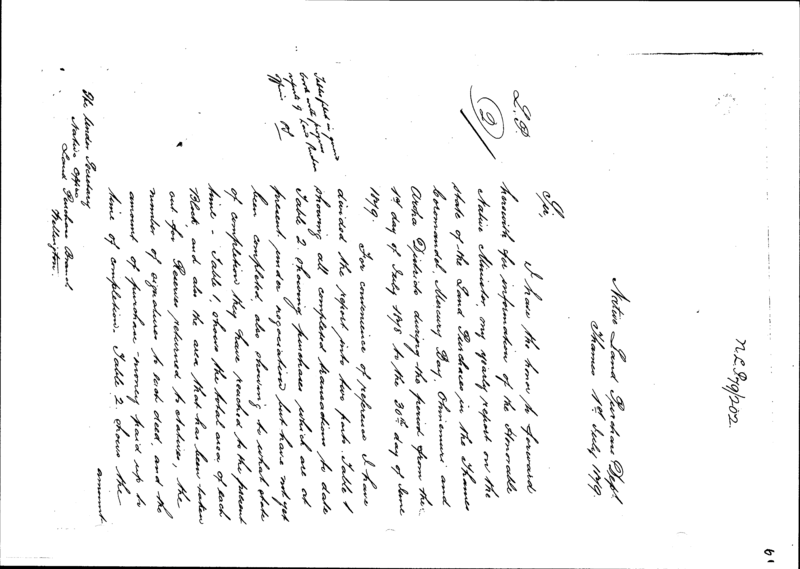 N.L.P 79/202
Native Land Purchase Dept
Thames 1st July 1879.
L.P.
2
Sir,
I have the honor to forward
herewith for information of the Honorable
Native Minister my yearly report on the
state of the Land Purchases in the Thames
Coromandel, Mercury Bay, Ohinemuri and
Aroha Districts during the period from the
1st day of July 1878 to the 30th day of June
1879.
For convenience of reference I have
divided the report into two parts. Table 1
showing all completed transactions to date
Table 2 showing purchases which are at
present under negotiation but have not yet
been completed, also showing to what state
of completion they have reached to the present
time - Table 1, shows the total area of each
Block and also the area that has been taken
out for Reserves returned to natives, the
number of signatures to each deed, and the
amount of purchase money paid up to
time of completion. Table 2 shows the
amount
Tables filed in
book with progress
reports of Land Purchase
Officers
The Under Secretary
Native Office
Land Purchase Branch
Wellington